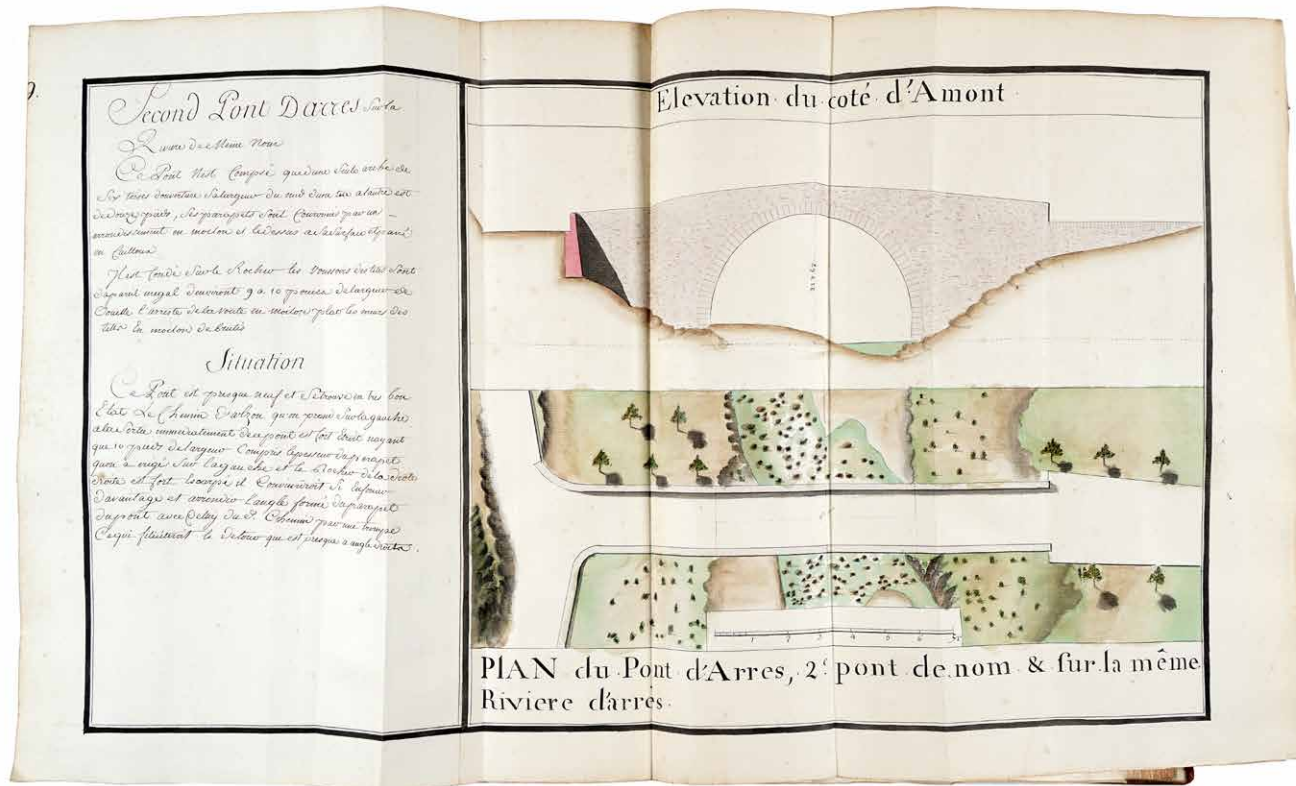 9.
Second Pont Darres Sur la
Riviere de Meme Nom
Ce Pont N'est Composé que d'une Seule arche de
Six toises douverture Sa largeur du nud d'une tête a lautre est
de douze pieds, Ses parapets Sont Couronnés par un
arrondissement en moelon et le dessus de la Surface est pavé
en Cailloux
Il est fondé Sur le Rocher les Voussoirs des têtes Sont
d'apareil inegal d'environt 9 a 10 pouces de largeur de
Douelle l'arreste de la voute en moelon plat les murs des
têtes En moelon de brutis
Situation
Ce Pont est presque neuf et Se trouve en tres bon
Etat Le Chemin Darzon qu'on prend Sur la gauche
a la Sortie immediatement du pont est fort Etroit nayant
que 10 pieds de largeur Compris lepesseur du parapet
quon a erigé Sur la gauche et le Rocher de la droite
Route est fort Escarpé il Conviendroit de
davantage et arrondir l'angle formé du parapet
du pont avec Celuy du d. Chemin par une
Ce qui faciliteroit le detour que est presque a angle droite.
Elevation du coté d'Amont
1 2 3 4 5 6
PlAN du Pont d'Arres, 2e pont de nom & sur la même
Riviere d'arres.